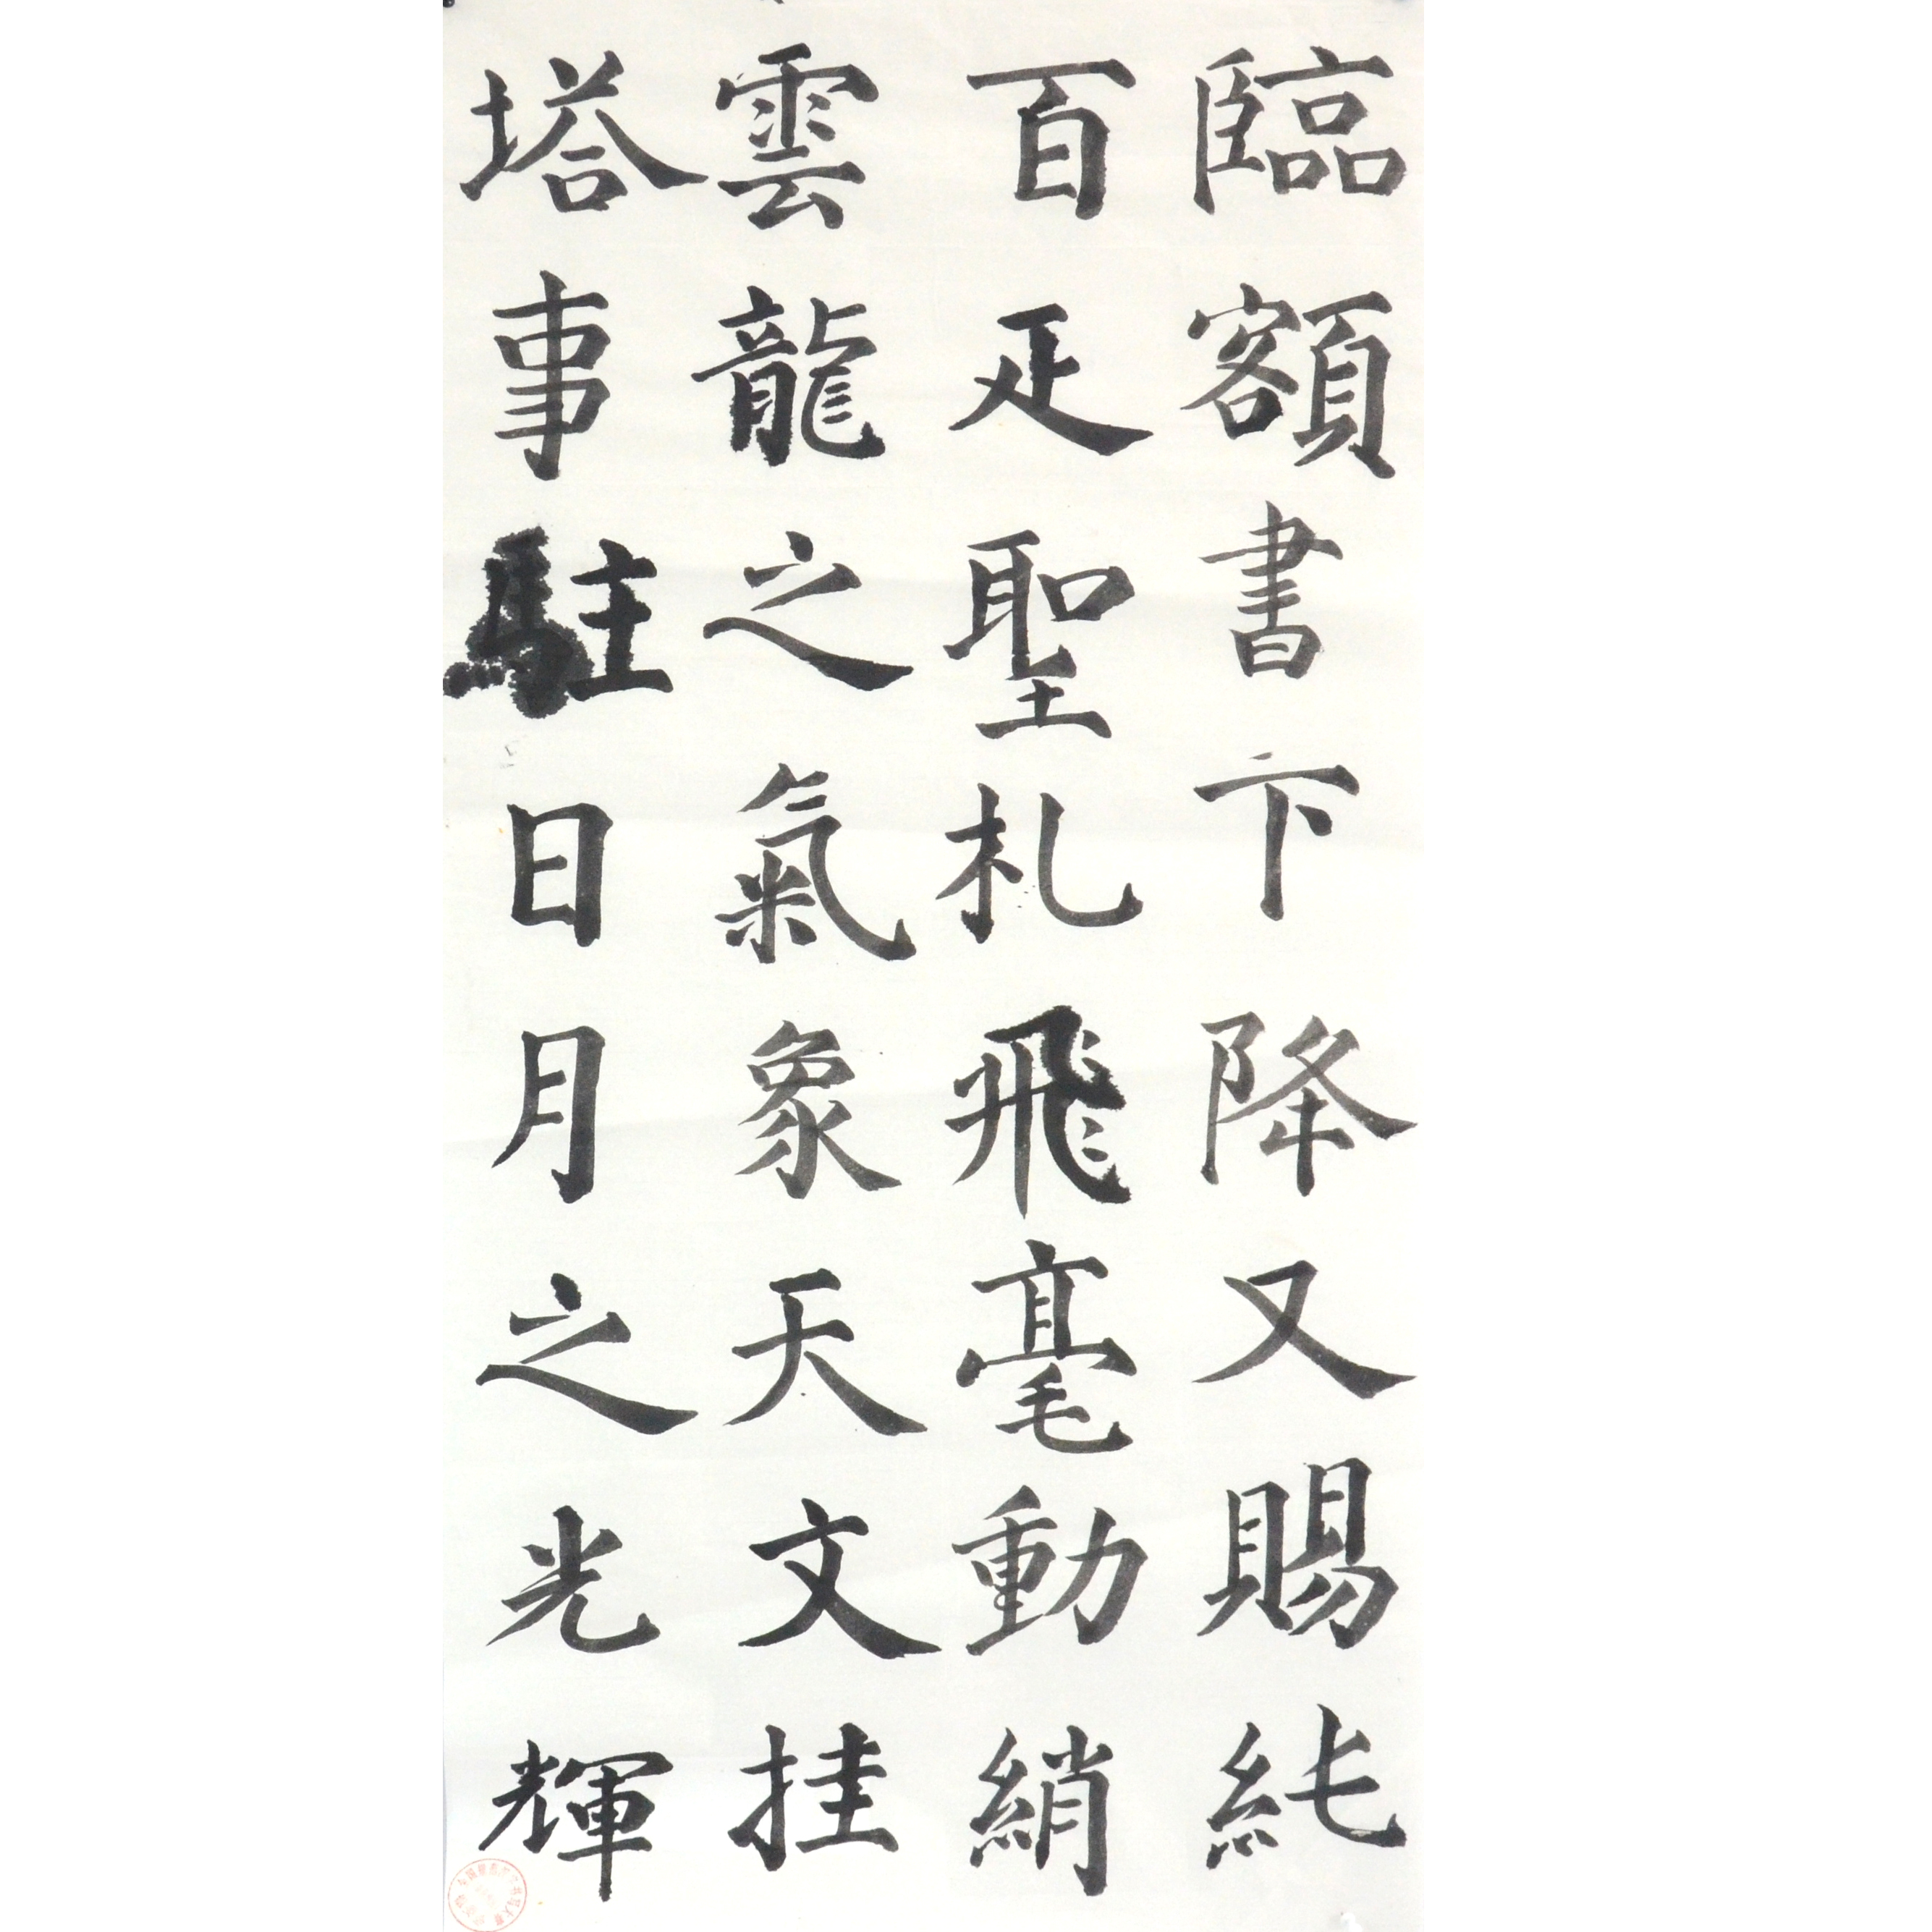 臨額書卞降又賜純
百疋聖札飛毫動綃
雲龍之氣象天文挂
塔事駐日月之光輝